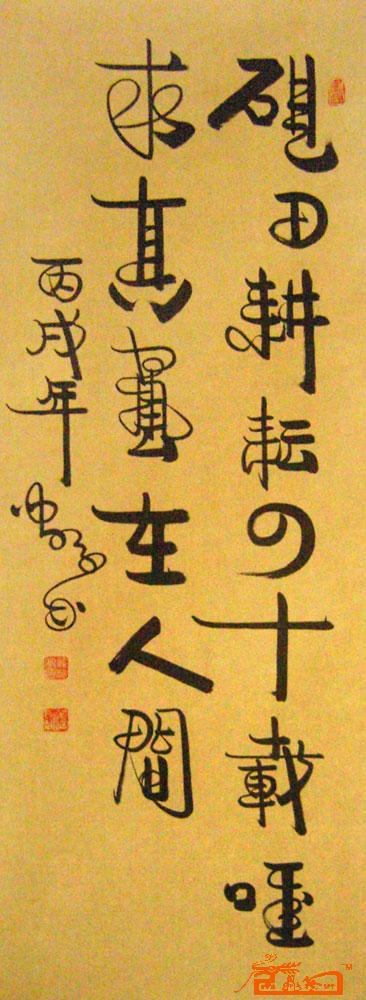 砚田耕耘四十载唯
求真画在人间
丙戌年